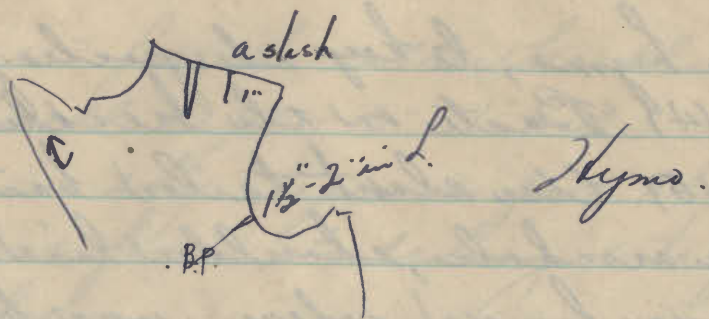 a slash
1"
1½"-2" in L.
Hymo.
B.P.